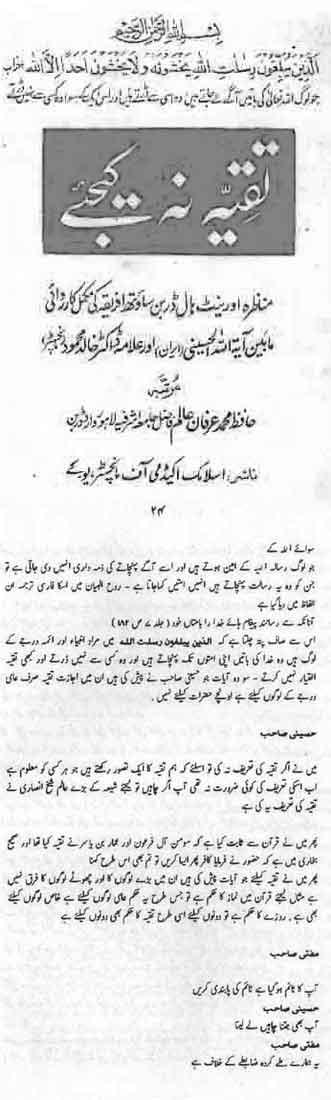 بسم اللہ الرحمن الرحیم
الذین یبلغون رسلت اللہ یخشونه ولا یخشون احدا الا اللہ
تقیہ نہ کیجئے
مناظرہ اورینٹ ہال ڈربن ساؤتھ افریقہ کی مکمل کارروائی
مابین آیة اللہ الحسینی (ایران) اور علامہ ڈاکٹر خالد محمود (مانچسٹر)
مرتبہ
حافظ محمد عرفان عالم فاضل جامعہ اشرفیہ لاہور وارد ڈربن
ناشر: اسلامک اکیڈمی آف مانچسٹر یو کے
۲۴
سوائے اللہ کے
جو لوگ رسالہ الہیہ کے امین ہوتے ہیں اور اسے آگے پہنچانے کی ذمہ داری انہیں دی جاتی ہے تو
جن کو وہ یہ رسالت پہنچاتے ہیں انہیں امتیں کہا جاتا ہے ۔ روح البیان میں اسکا فارسی ترجمہ ان
الفاظ میں دیا گیا ہے
آنانکہ سے رسانند پیغام ہائے خدا را بامتاں خود ( جلد ۷ ص ۱۸۲ )
اس سے صاف پتہ چلتا ہے کہ الذین یبلغون رسلت اللہ میں مراد انبیاء اور ائمہ درجے کے
لوگ ہیں وہ خدا کی باتیں اپنی امتوں تک پہنچاتے ہیں اور وہ کسی سے نہیں ڈرتے اور کبھی تقیہ
اختیار نہیں کرتے ۔ سو وہ آیات جو حسینی صاحب نے پیش کی ہیں ان میں اجازت تقیہ صرف عامی
درجے کے لوگوں کیلئے ہے اونچے حضرات کیلئے نہیں ۔
حسینی صاحب
میں نے اگر تقیہ کی تعریف نہ کی تو اسلئے کہ ہم تقیہ کا ایک تصور رکھتے ہیں جو ہر کسی کو معلوم ہے
اب اسکی تعریف کی کوئی ضرورت نہ تھی آپ اگر چاہیں تو لیجئے شیعہ کے بڑے عالم شیخ انصاری نے
تقیہ کی تعریف یہ کی ہے
پھر میں نے قرآن سے ثابت کیا ہے کہ مومن آل فرعون اور عمار بن یاسر نے تقیہ کیا تھا اور صحیح
بخاری میں ہے کہ حضور نے فرمایا کافر پھر ایسا کریں تو تم بھی اس طرح کہنا
پھر میں نے تقیہ کیلئے جو آیات پیش کی ہیں ان میں بڑے لوگوں کا اور چھوٹے لوگوں کا فرق نہیں
ہے مثال لیجئے قرآن میں نماز کا حکم ہے تو جس طرح یہ حکم عامی لوگوں کیلئے ہے خاص لوگوں کیلئے
بھی ہے ۔ روزے کا حکم ہے تو دونوں کیلئے اسی طرح تقیہ کا حکم بھی دونوں کیلئے ہے
مفتی صاحب
آپ کا ٹائم ہو گیا ہے ٹائم کی پابندی کریں
حسینی صاحب
آپ بھی جتنا چاہیں لے لینا
مفتی صاحب
یہ ہمارے طے کردہ ضابطے کے خلاف ہے